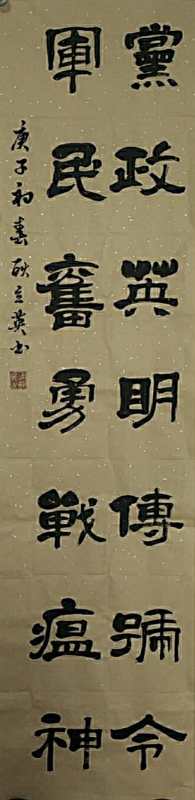 黨政英明傳號令
軍民奮勇戰瘟神
庚子初春耿立英书